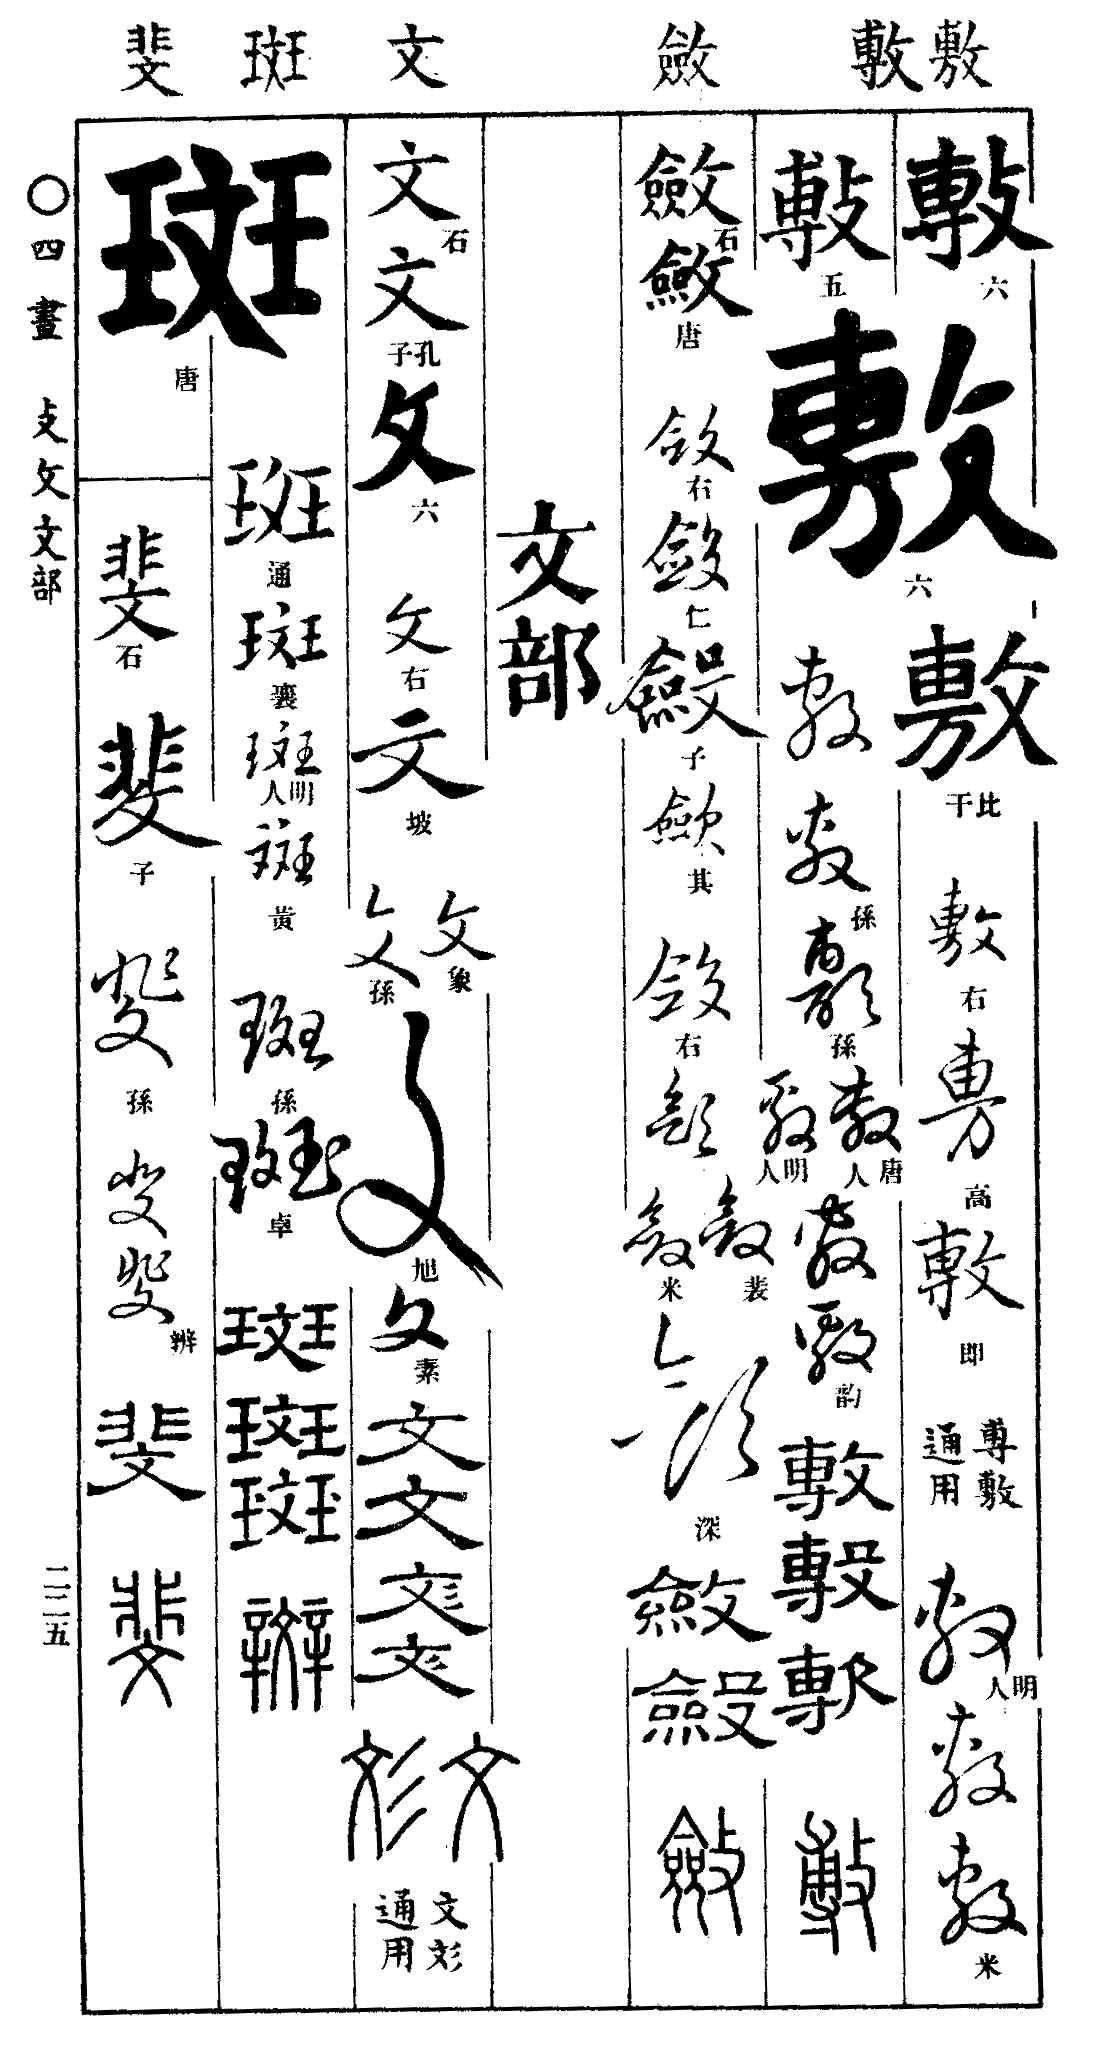 敷 敷 斂 文 斑 斐
敷 六
敷 六
敷 比干
敷 右
敷 高
敷 即
尃敷通用
敷 明人
敷
敷 米
敷 五
敷
敷 孫
敷 孫
敷 唐人
敷 明人
敷
敷 韵
敷
敷
敷
敷
斂 石
斂 唐
斂 右
斂 仁
斂 子
斂 其
斂 右
斂
斂 裴
斂 米
斂 深
斂
斂
斂
文部
文 石
文 孔子
文 六
文 右
文 坡
文 象
文 孫
文 旭
文 素
文
文
彣
彣
文
彣
文彣通用
斑 唐
斑 通
斑 襄
斑 明人
斑 黄
斑 孫
斑 卓
斑
斑
斑
辬
斐 石
斐 子
斐 孫
斐
斐 辨
斐
斐
〇四畫 攴攵文部
二二五